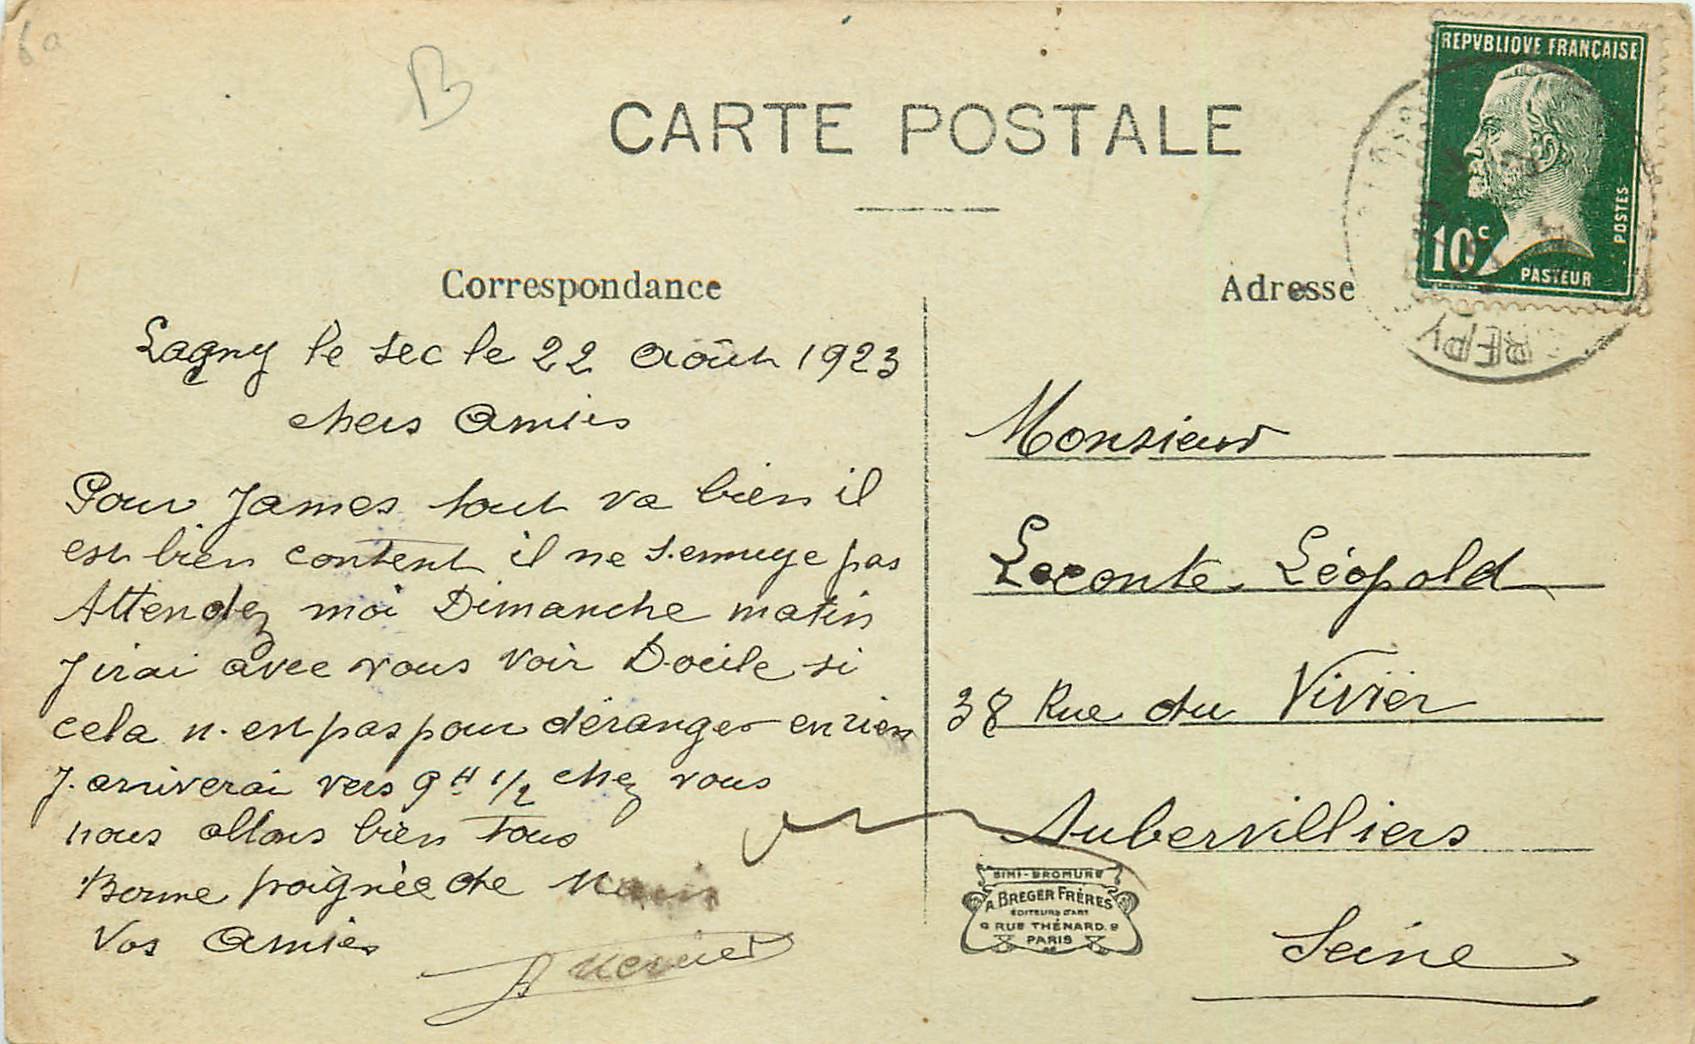 B
CARTE POSTALE
REPVBLIQVE FRANÇAISE
10c
POSTES
PASTEUR
CREPY
Correspondance
Lagny le sec le 22 Août 1923
chers Amies
Pour James tout va bien il
est bien content il ne s.ennuye pas
Attendez moi Dimanche matin
J irai avec vous voir Docile si
cela n.est pas pour déranger en rien
J.arriverai vers 9H 1/2 chez vous
nous allons bien tous
Bonne poignée de Main
Vos Amies
Adresse
Monsieur
Leconte Léopold
38 Rue du Vivier
Aubervilliers
Seine
SIMI-BROMURE
A. BREGER FRÈRES
ÉDITEURS D'ART
9 RUE THÉNARD. 9
PARIS